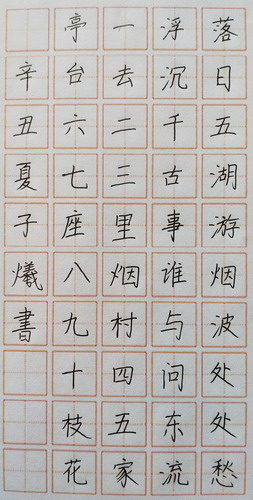 落日五湖游烟波处处愁
浮沉千古事谁与问东流
一去二三里烟村四五家
亭台六七座八九十枝花
辛丑夏子爔書